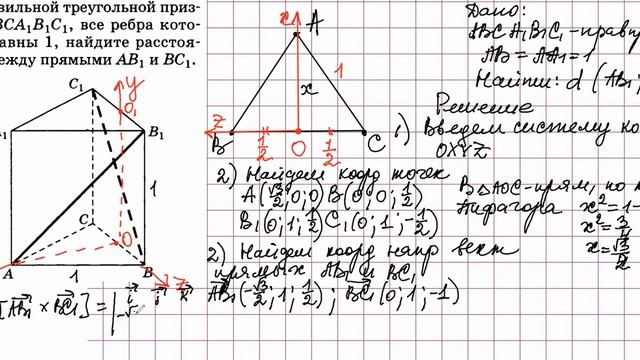 вильной треугольной приз-
BCA₁B₁C₁, все ребра кото-
авны 1, найдите расстоя-
ежду прямыми AB₁ и BC₁.
C₁
y
O₁
A₁
B₁
1
C
O
A
1
B
z
[AB₁ × BC₁] = | i j k
-√
x
A
x
1
z
B
1/2
O
1/2
C
Дано:
ABCA₁B₁C₁ - прав
AB = AA₁ = 1
Найти: d (AB₁;
Решение
1) Введем систему ко
OXYZ
2) Найдем коорд точек
A(√3/2; 0; 0) B(0; 0; 1/2)
B₁(0; 1; 1/2) C₁(0; 1; -1/2)
В △AOC - прям, по
Пифагора x² = 1 -
x² = 3/4
x = √3/2
2) Найдем коорд напр вект
прямых AB₁ и BC₁
AB₁(-√3/2; 1; 1/2); BC₁(0; 1; -1)